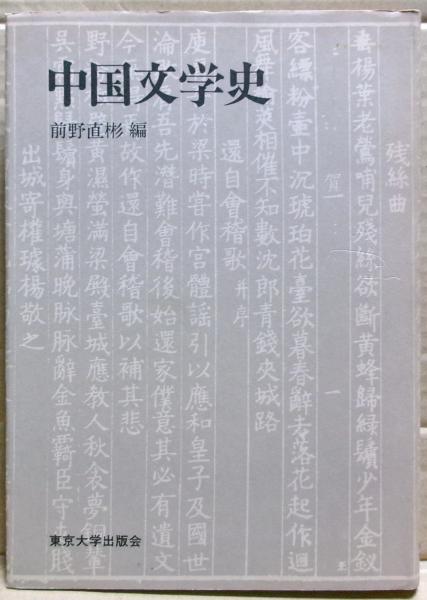 中国文学史
前野直彬 編
残絲曲
垂楊葉老鶯哺兒殘絲欲斷黄蜂歸綠鬢少年金釵
客縹粉壷中沉琥珀花臺欲暮春辭去落花起作迴
風 相催不知數沈郎青錢夾城路
還自會稽歌 并序
庾 於梁時甞作宮體謡引以應和皇子及國世
淪 吾先潛難會稽後始還家僕意其必有遺文
今 故作還自會稽歌以補其悲
野 黄濕螢滿梁殿臺城應教人秋衾夢銅輦
吳 鬢身與塘蒲晚脉脉辭金魚羈臣守 賤
出城寄權璩楊敬之
賀一
一
東京大学出版会